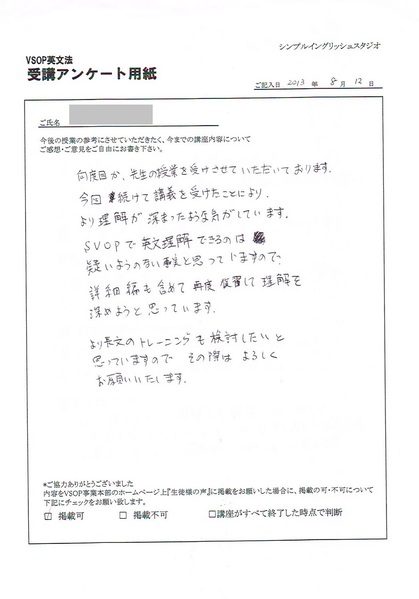 シンプルイングリッシュスタジオ
VSOP英文法
受講アンケート用紙
ご記入日 2013 年 8 月 12 日
ご氏名
今後の授業の参考にさせていただきたく、今までの講座内容について
ご感想・ご意見をご自由にお書き下さい。
何度目か、先生の授業を受けさせていただいております。
今回 続けて講義を受けたことにより、
より理解が深まったような気がしています。
SVOPで英文理解できるのは
疑いようのない事実と思っていますので、
詳細編も含めて再度復習して理解を
深めようと思っています。
より長文のトレーニングも検討したいと
思っていますので その際は よろしく
お願いいたします。
*ご協力ありがとうございました
内容をVSOP事業本部のホームページ上『生徒様の声』に掲載をお願いした場合に、掲載の可・不可について
下記にチェックをお願い致します。
☑ 掲載可 □ 掲載不可 □講座がすべて終了した時点で判断